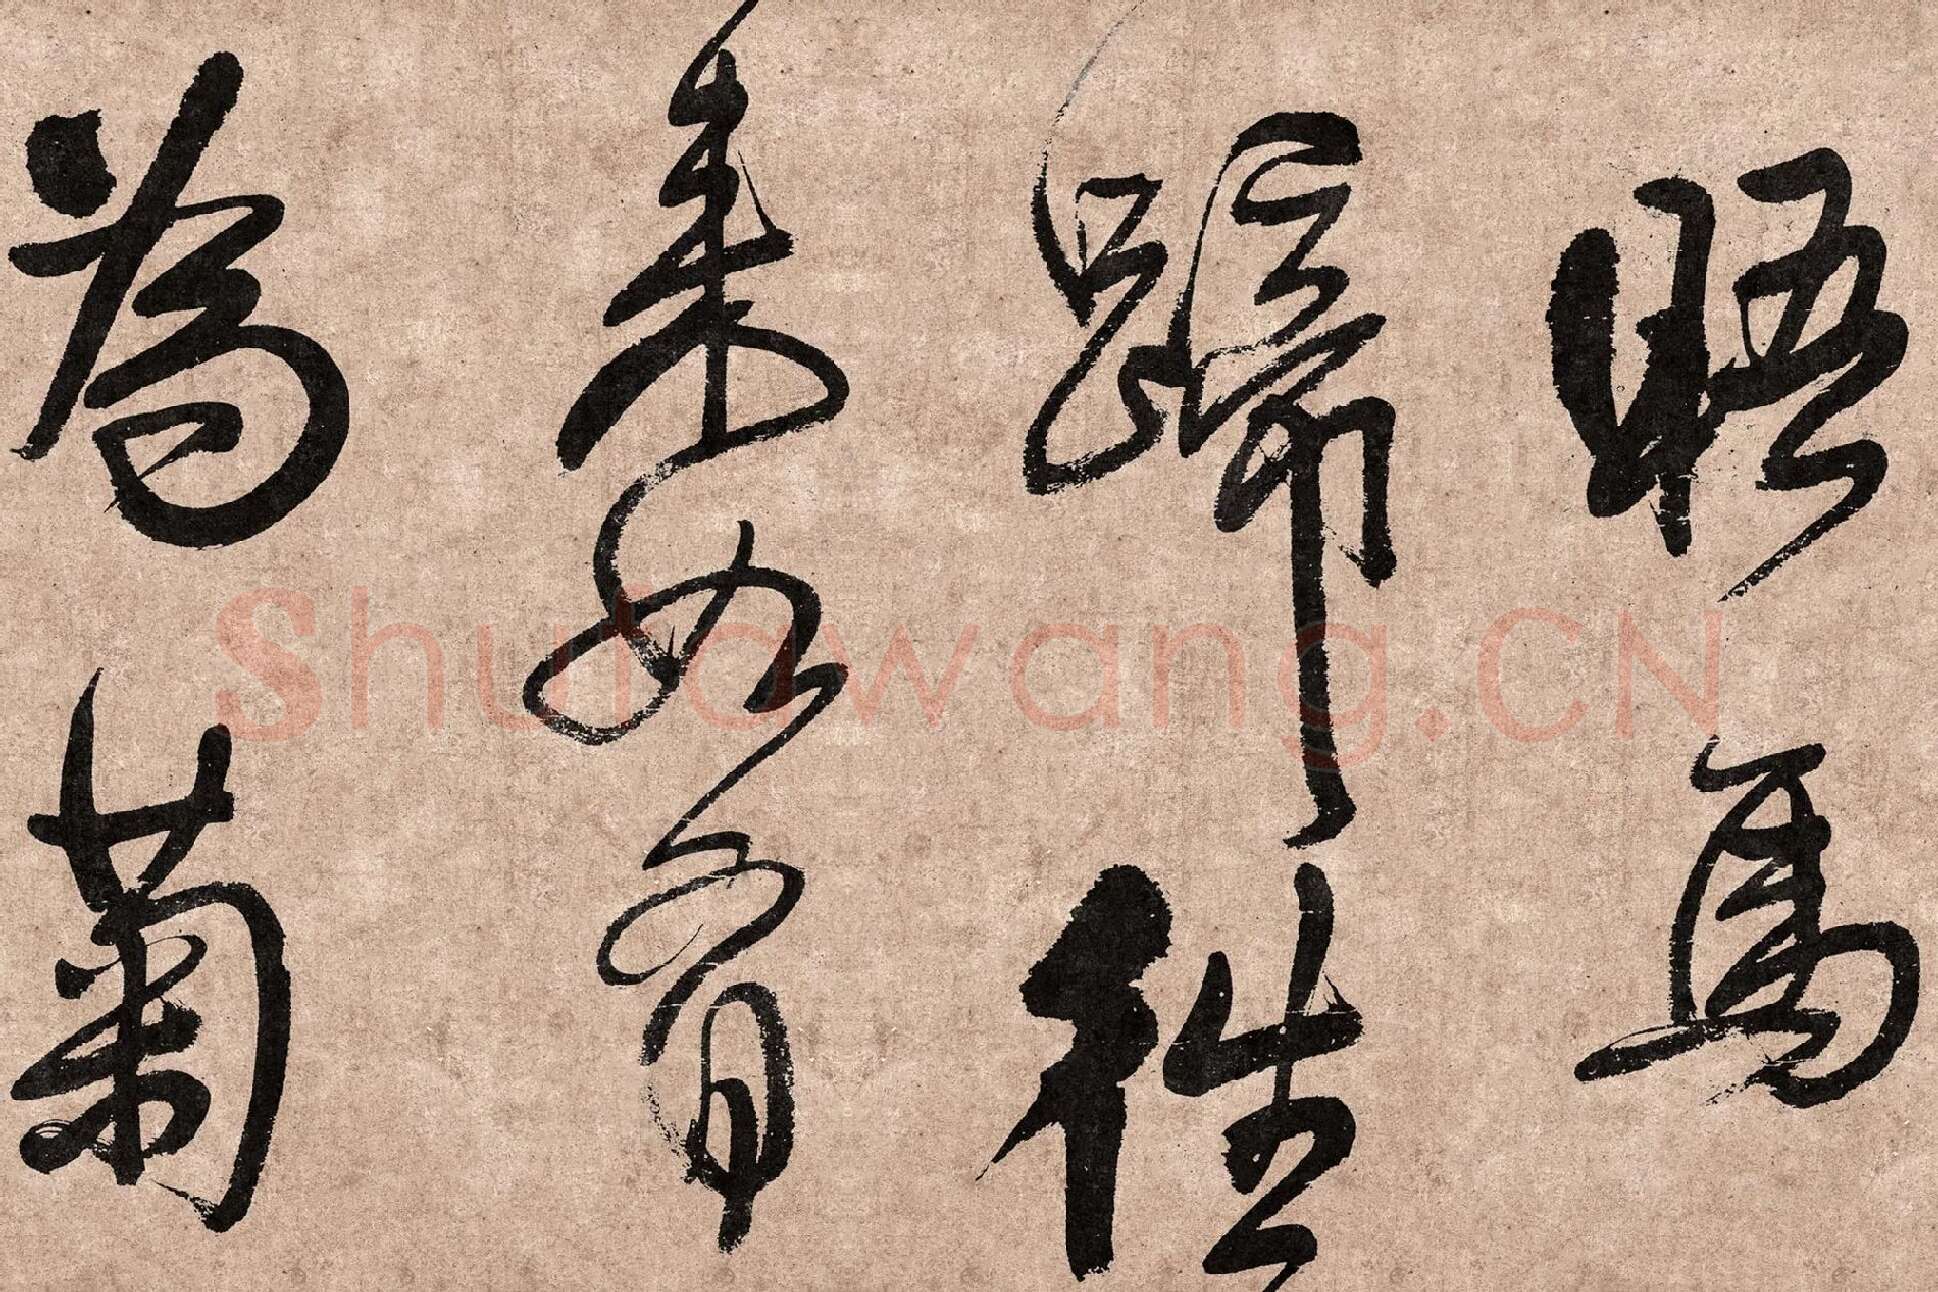 晤馬
蹄往
來如有
為菊
Shufawang.CN